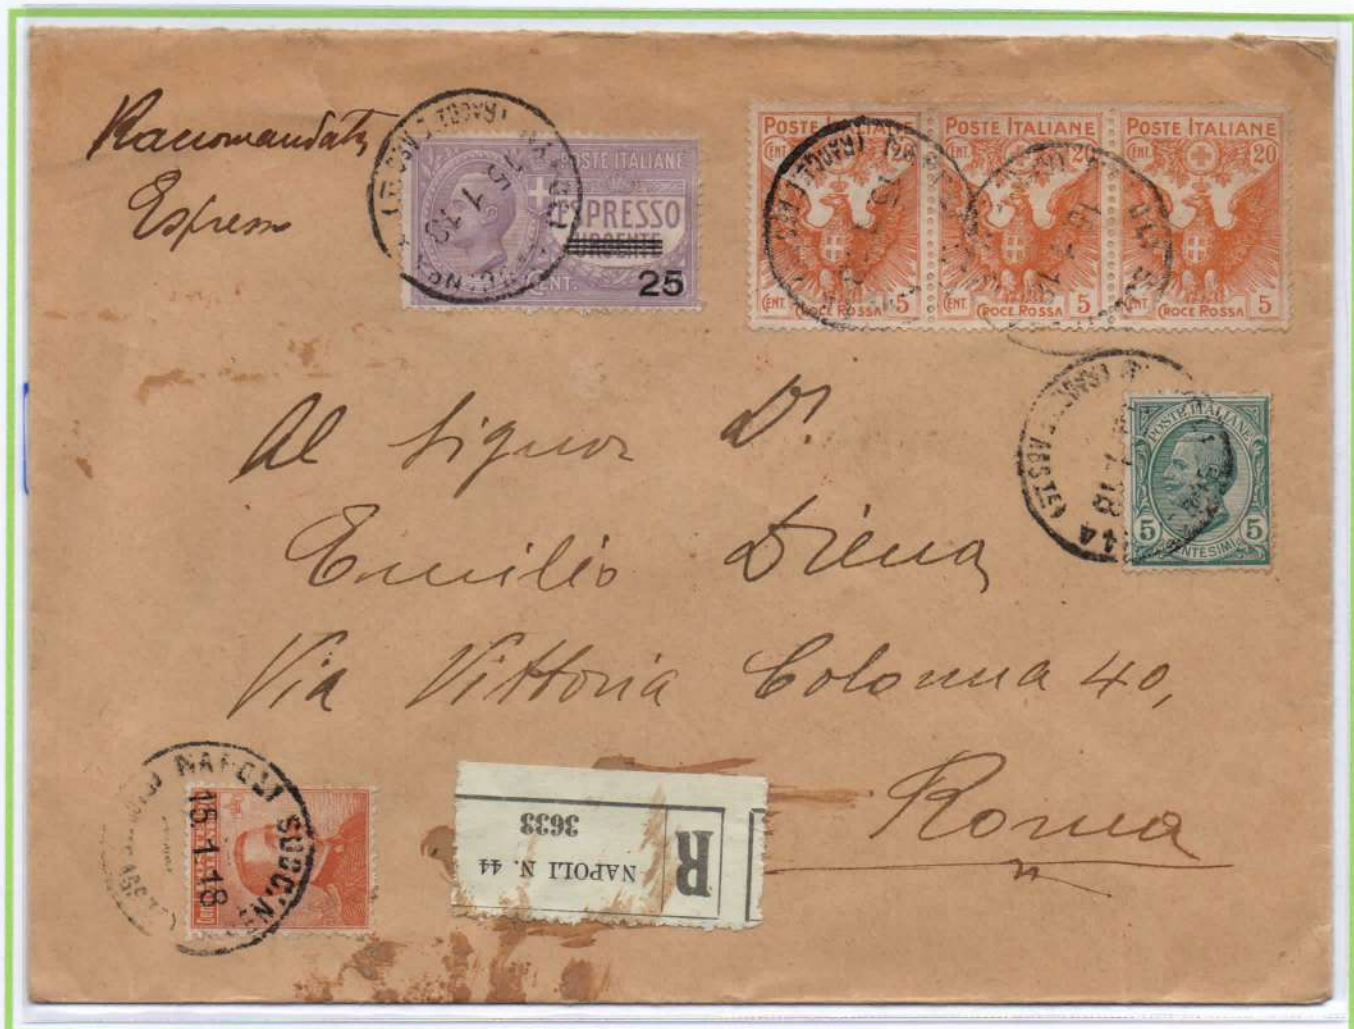 Raccomandata
Espresso
POSTE ITALIANE
ESPRESSO
URGENTE
CENT. 25
POSTE ITALIANE
CENT. 20
CENT. 5
CROCE ROSSA
POSTE ITALIANE
CENT. 20
CENT. 5
CROCE ROSSA
POSTE ITALIANE
CENT. 20
CENT. 5
CROCE ROSSA
Al Signor Dr.
POSTE ITALIANE
5 5
CENTESIMI
44
Emilio Diena
Via Vittoria Colonna 40,
Roma
NAPOLI SUCC. N.
15.1.18
R
NAPOLI N. 44
3633